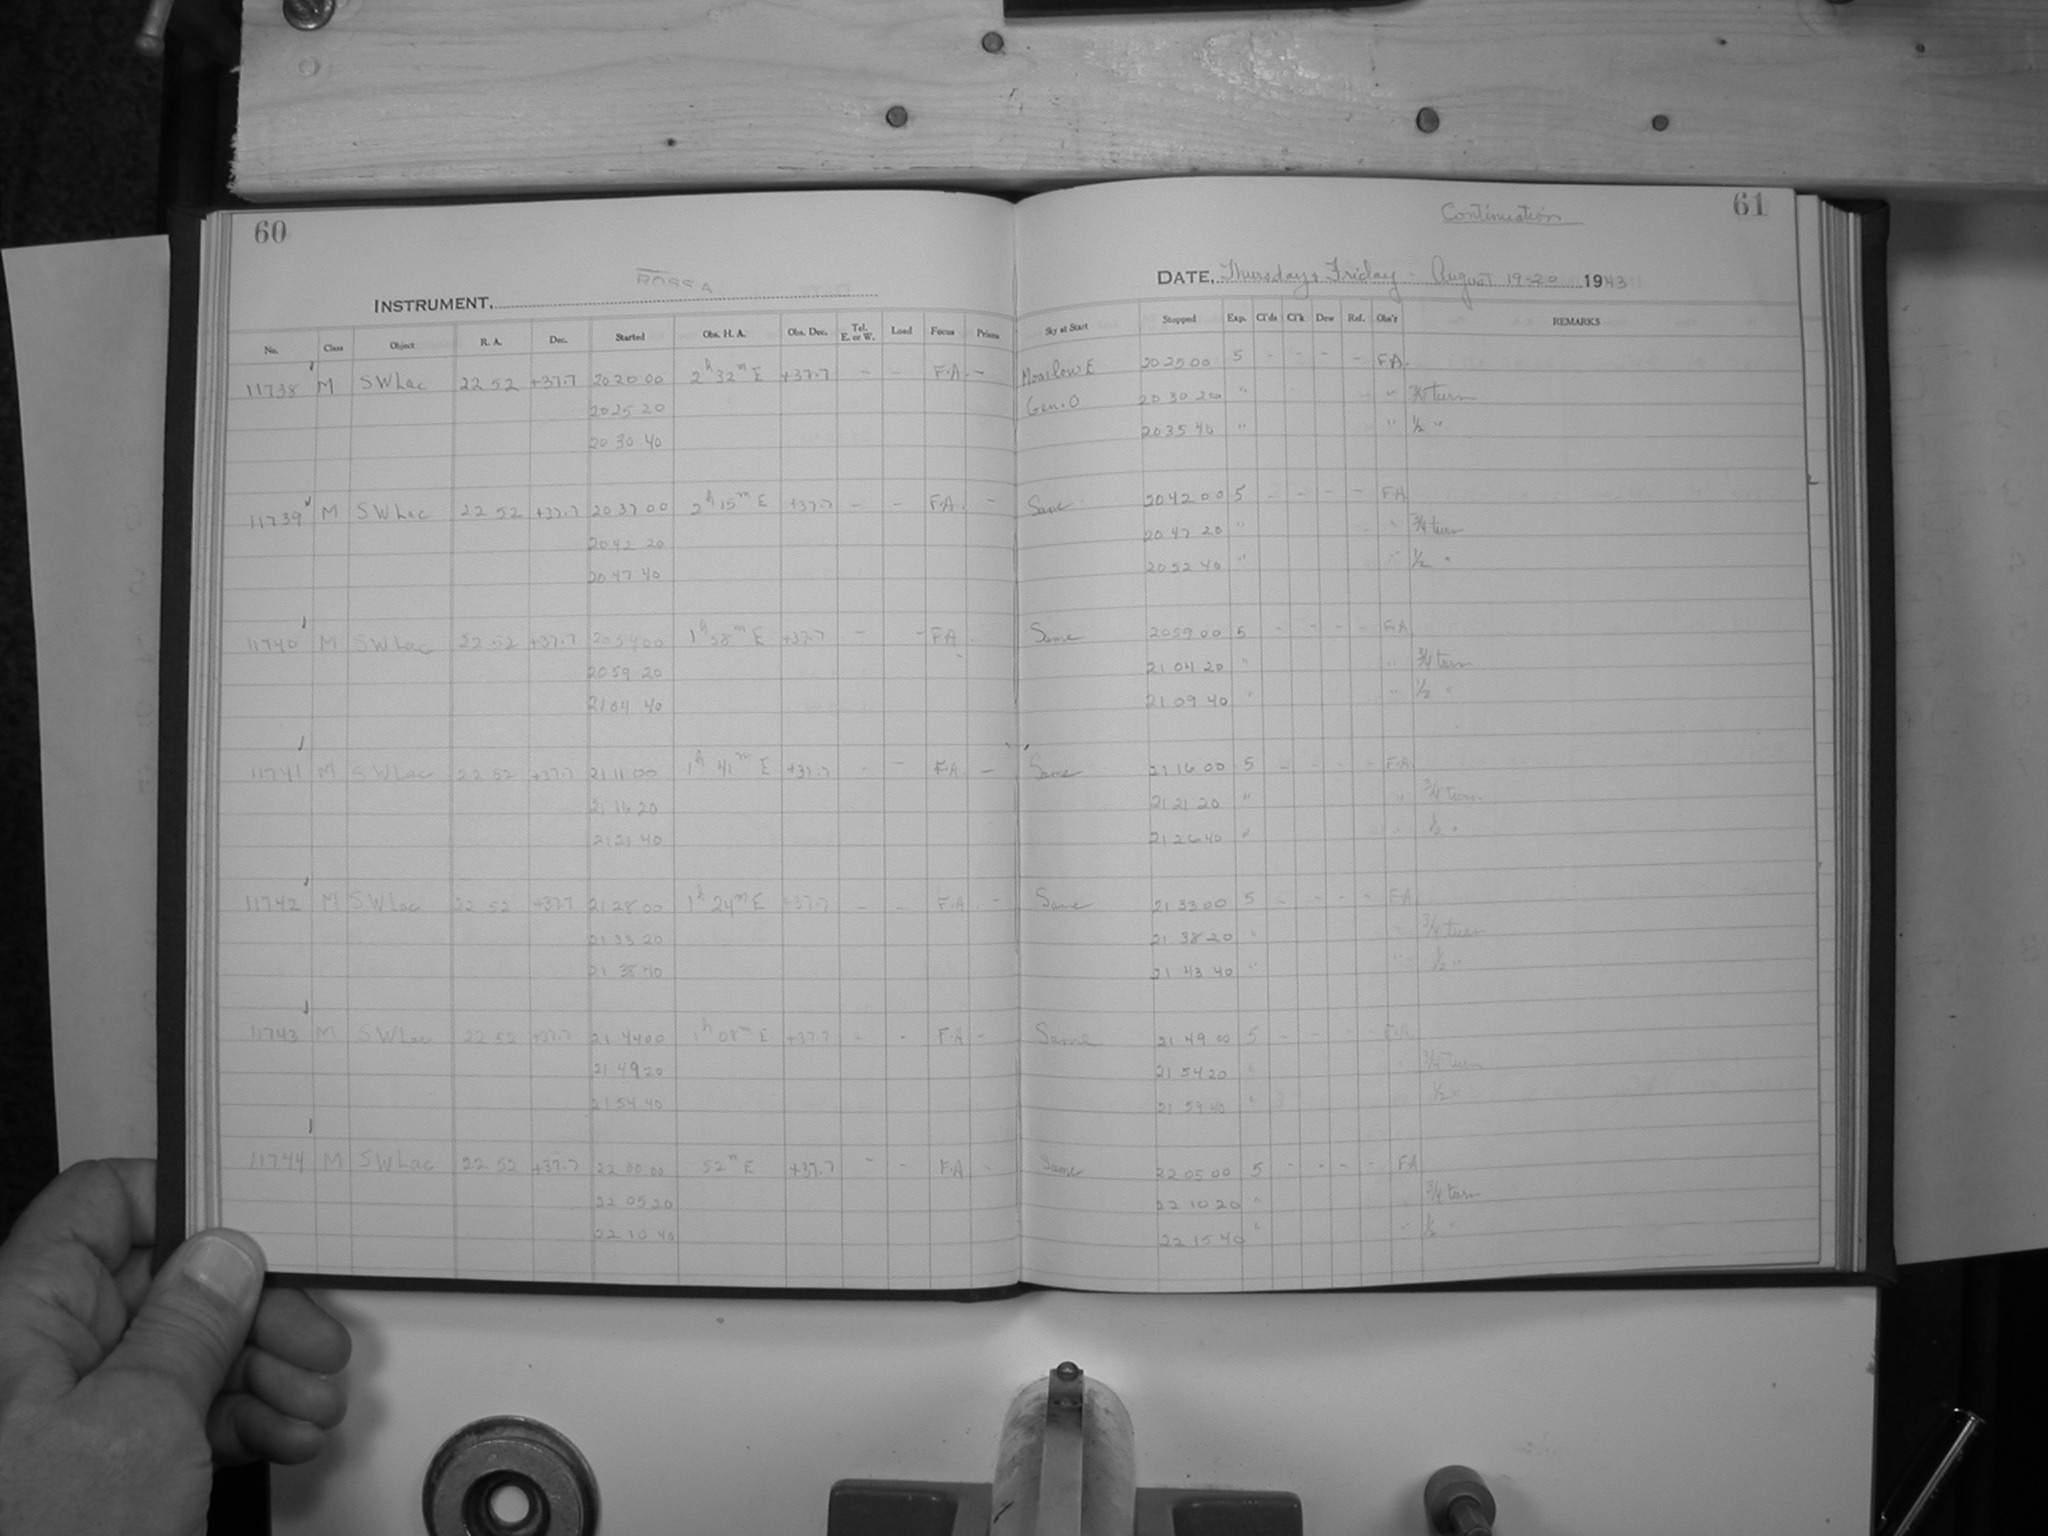 60
ROSS A
INSTRUMENT,
No. Class Object R. A. Dec. Started Obs. H. A. Obs. Dec. Tel. E. or W. Load Focus Prisms
11738 M SW Lac 22 52 +37.7 20 20 00 2h 32m E +37.7 - - F.A. -
20 25 20
20 30 40
11739 M SW Lac 22 52 +37.7 20 37 00 2h 15m E +37.7 - - F.A. -
20 42 20
20 47 40
11740 M SW Lac 22 52 +37.7 20 54 00 1h 58m E +37.7 - - F.A.
20 59 20
21 04 40
11741 M SW Lac 22 52 +37.7 21 11 00 1h 41m E +37.7 - - F.A. -
21 16 20
21 21 40
11742 M SW Lac 22 52 +37.7 21 28 00 1h 24m E +37.7 - - F.A. -
21 33 20
21 38 40
11743 M SW Lac 22 52 +37.7 21 44 00 1h 08m E +37.7 - - F.A. -
21 49 20
21 54 40
11744 M SW Lac 22 52 +37.7 22 00 00 52m E +37.7 - - F.A. -
22 05 20
22 10 40
Continuation
61
DATE, Thursday & Friday - August 19-20 1943
Sky at Start Stopped Exp. Cl'ds Cl'k Dew Ref. Obs'r REMARKS
Moon low E 20 25 00 5 - - - - F.A.
Gen. O 20 30 20 " " 3/4 turn
20 35 40 " " 1/2 "
Same 20 42 00 5 - - - - F.A.
20 47 20 " " 3/4 turn
20 52 40 " " 1/2 "
Same 20 59 00 5 - - - - F.A.
21 04 20 " " 3/4 turn
21 09 40 " " 1/2 "
Same 21 16 00 5 - - - - F.A.
21 21 20 " " 3/4 turn
21 26 40 " " 1/2 "
Same 21 33 00 5 - - - - F.A.
21 38 20 " " 3/4 turn
21 43 40 " " 1/2 "
Same 21 49 00 5 - - - - F.A.
21 54 20 " " 3/4 turn
21 59 40 " 1/2 "
Same 22 05 00 5 - - - - FA
22 10 20 " " 3/4 turn
22 15 40 " " 1/2 "